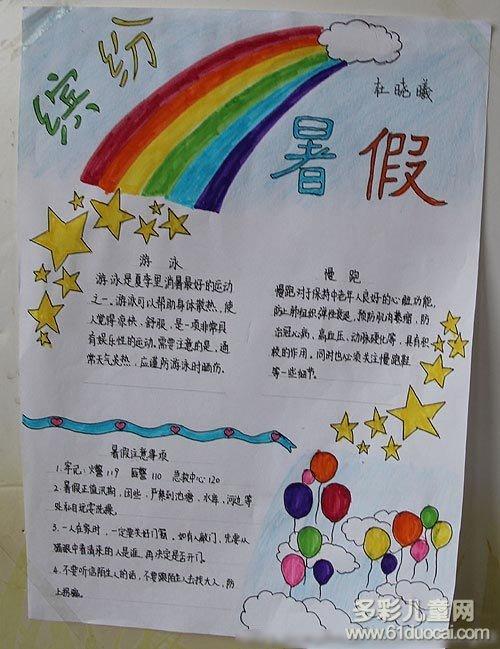 缤纷
杜晓曦
暑假
游泳
游泳是夏季里消暑最好的运动
之一。游泳可以帮助身体散热，使
人觉得凉快、舒服，是一项非常具
有娱乐性的运动。需要注意的是，通
常天气炎热，应谨防游泳时晒伤。
慢跑
慢跑对于保持中老年人良好的心脏功能，
防止肺组织弹性衰退，预防肌肉萎缩，防
治冠心病、高血压、动脉硬化等，具有积
极的作用。同时也必须关注慢跑鞋
等一些细节。
暑假注意事项
1. 牢记：火警119 匪警110 急救中心120
2. 暑假正值汛期，因此，严禁到池塘，水库，河边等
处私自玩耍洗澡。
3. 一人在家时，一定要关好门窗，如有敲门，先要从
猫眼中看清来的人是谁，再决定是否开门。
4. 不要听信陌生人的话，不要跟陌生人去找大人，防
上拐骗。
多彩儿童网
www.61duocai.com